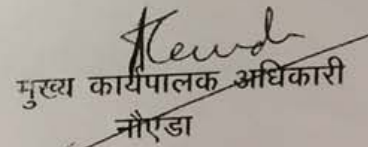 मुख्य कार्यपालक अधिकारी
नौएडा